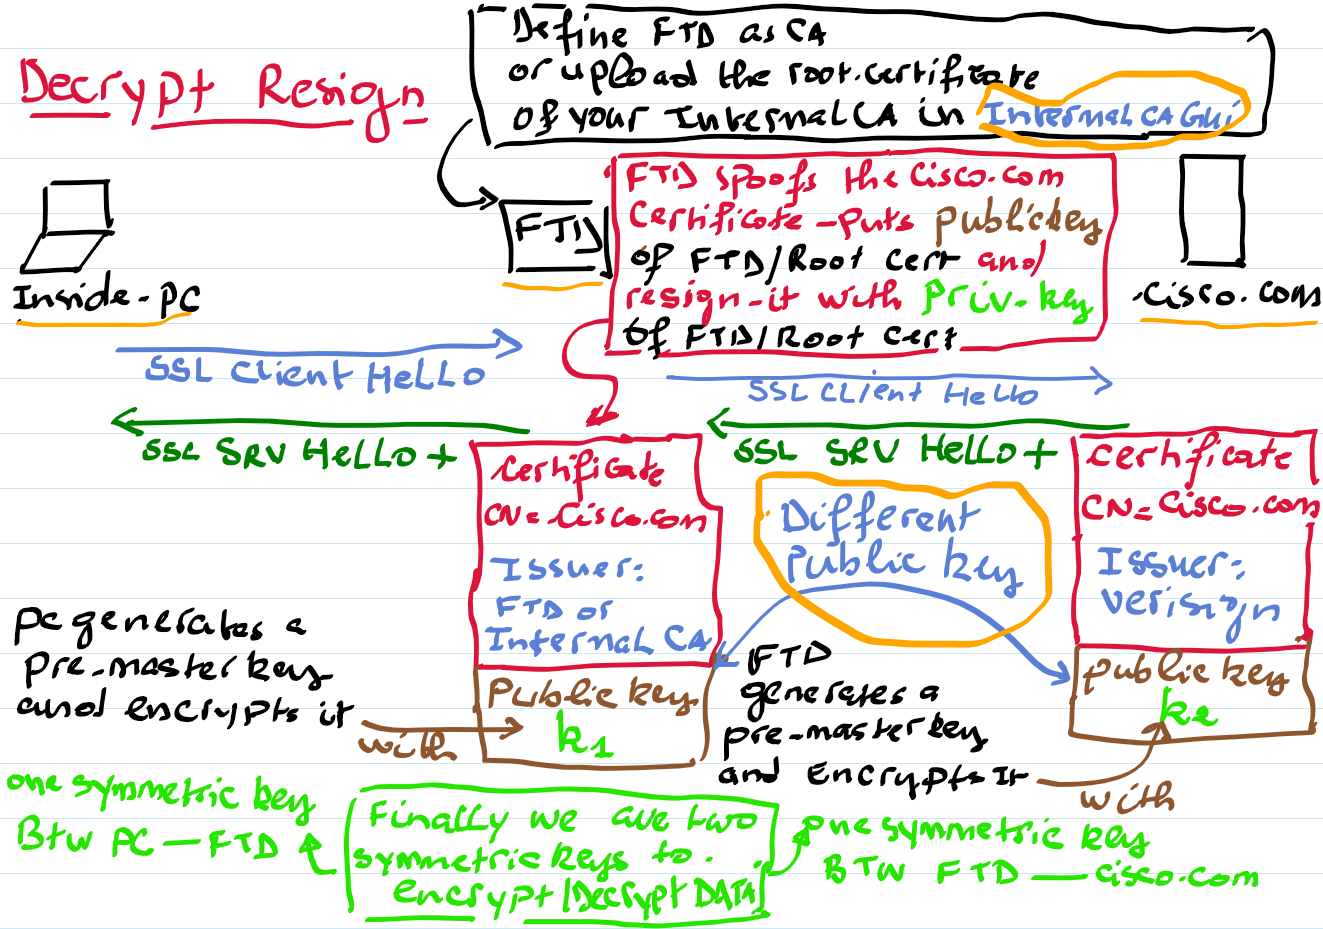 Decrypt Resign
Define FTD as CA
or upload the root.certificate
of your Internal CA in Internal CA Gui
Inside-PC
FTD
FTD spoofs the Cisco.com
Certificate -Puts publickey
of FTD/Root cert and
resign-it with priv-key
of FTD/Root Cert
.Cisco.com
SSL Client HeLLO
SSL CLient Hello
SSL SRV HeLLO +
SSL SRV HeLLO +
certificate
CN=.Cisco.com
Issuer:
FTD or
Internal CA
Public key
k1
Different
Public key
certificate
CN= Cisco.com
Issuer:
verisign
public key
k2
Pc generates a
pre-master key
and encrypts it
with
FTD
generates a
pre-master key
and Encrypts It
with
one symmetric key
BTW PC — FTD
Finally we ave two
symmetric keys to.
encrypt/Decrypt DATA
one symmetric key
BTW FTD — cisco.com